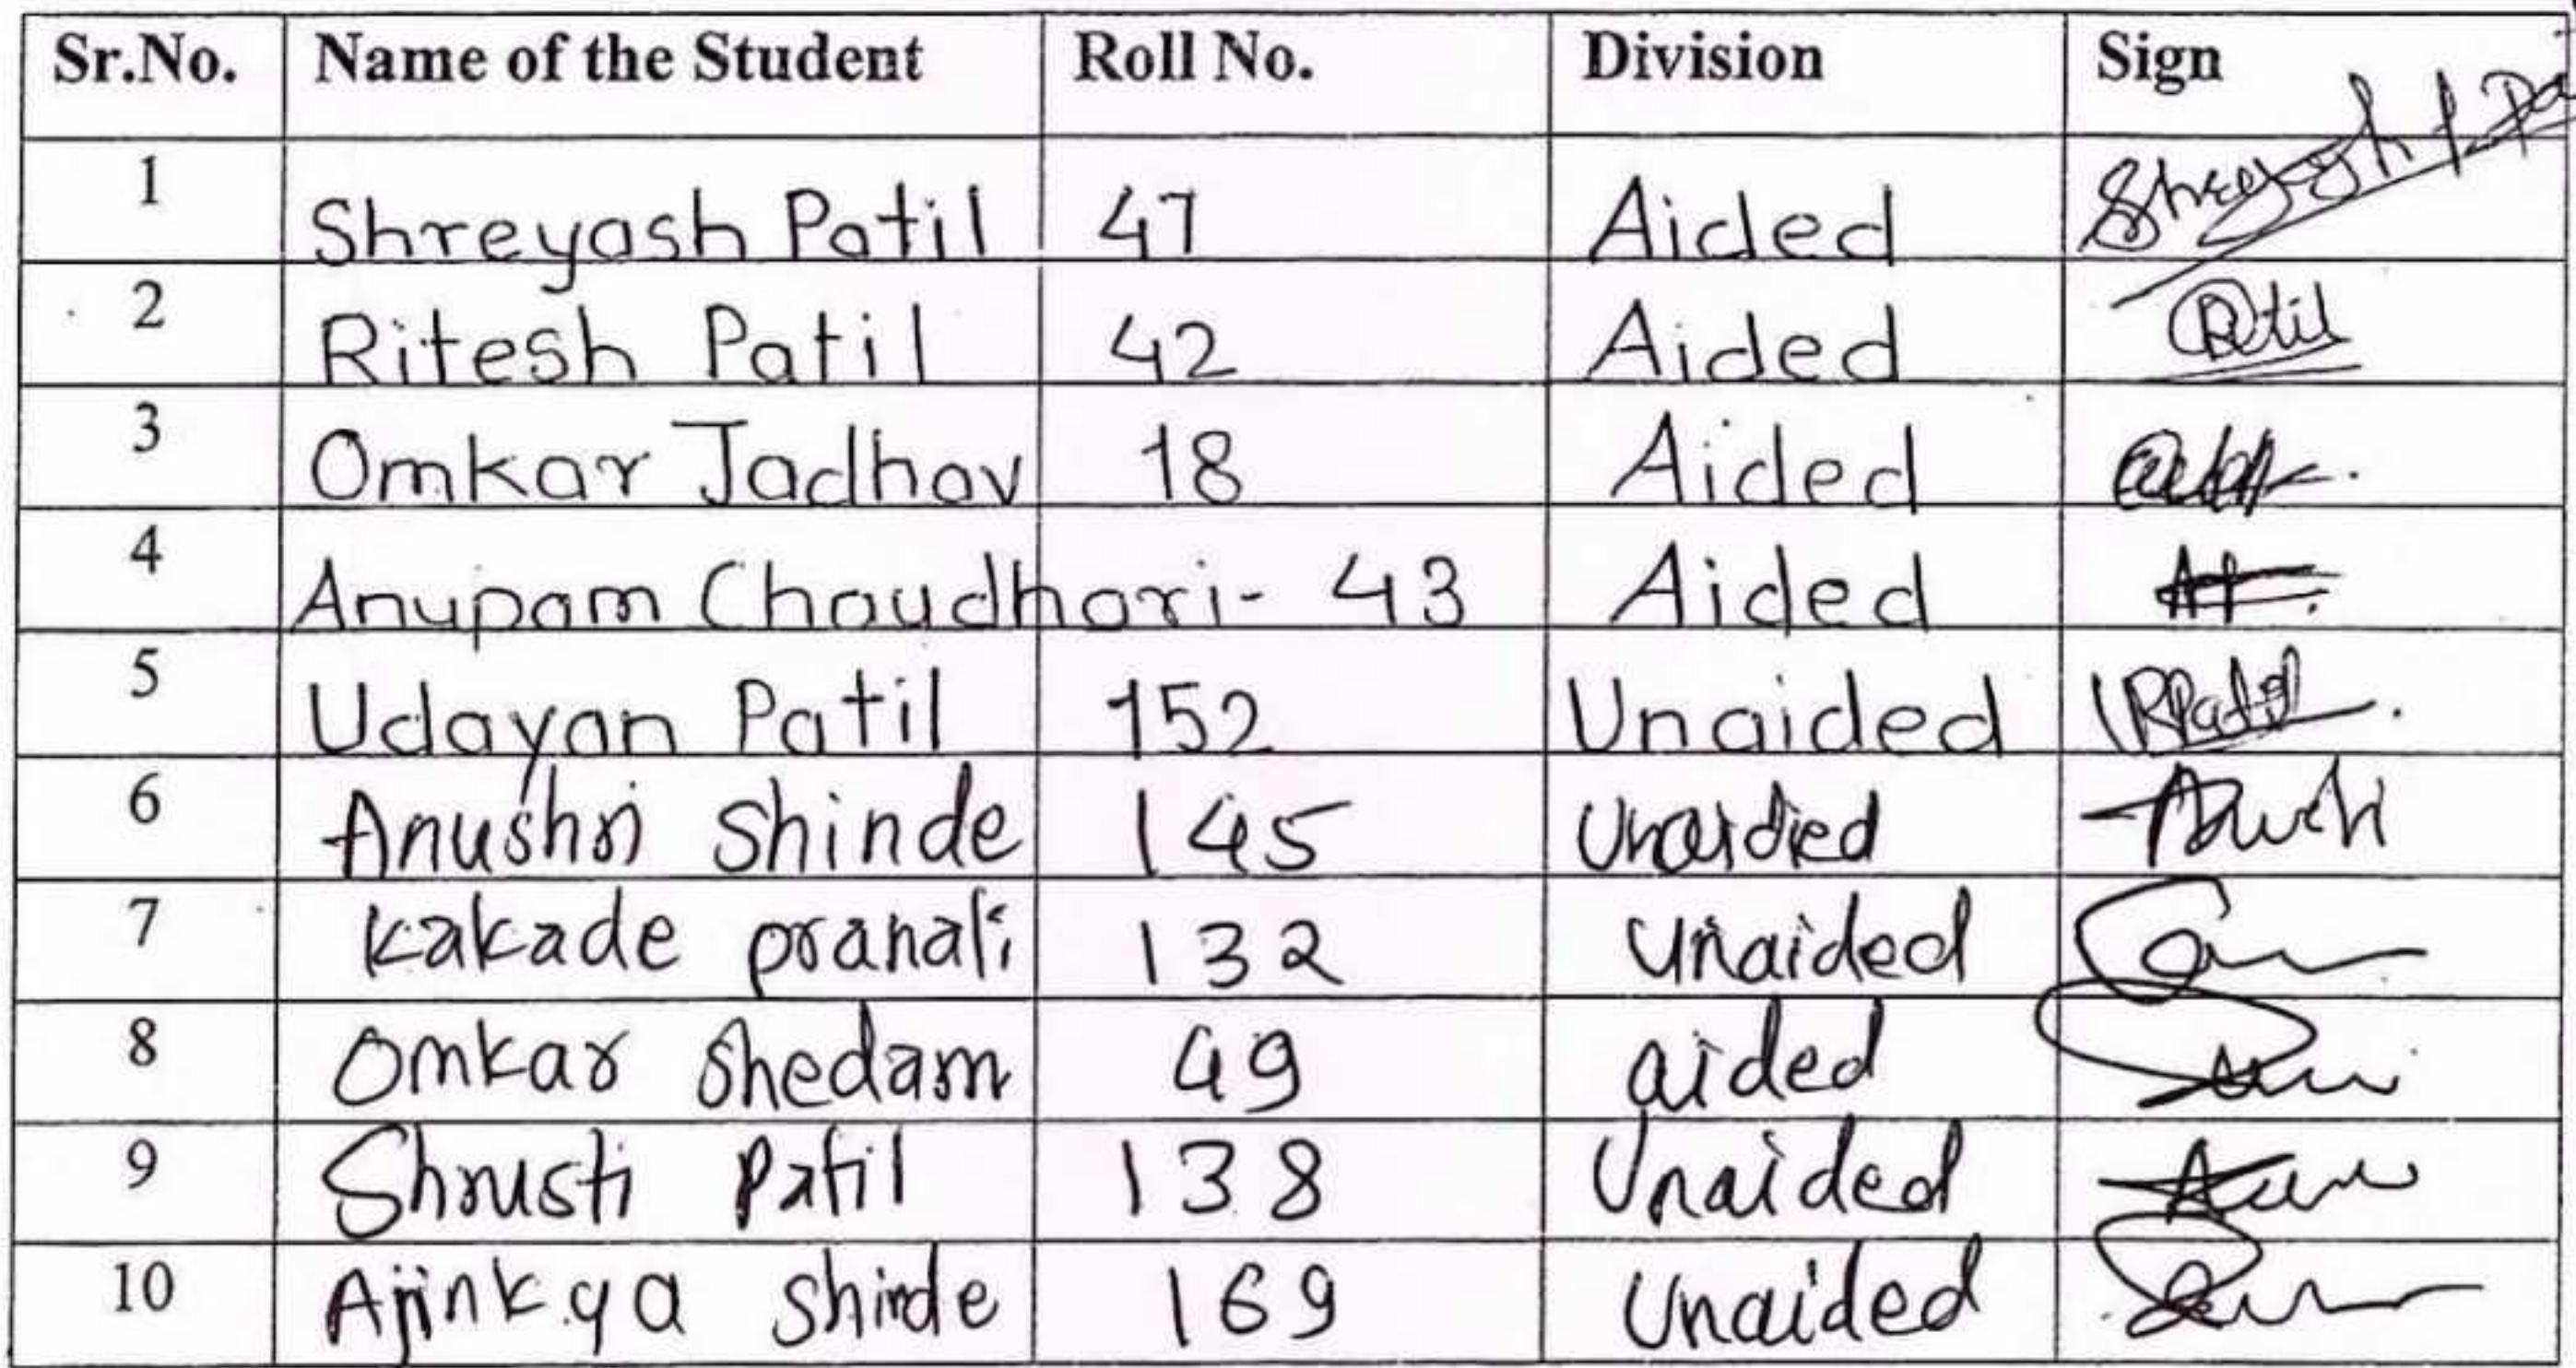 Sr.No. Name of the Student Roll No. Division Sign
1 Shreyash Patil 47 Aided
2 Ritesh Patil 42 Aided Patil
3 Omkar Jadhav 18 Aided
4 Anupam Choudhari- 43 Aided
5 Udayan Patil 152 Unaided
6 Anushri Shinde 145 Unaidied
7 kakade pranali 132 Unaided
8 Omkar Shedam 49 aided
9 Shrusti Patil 138 Unaided
10 Ajinkya Shinde 169 Unaided